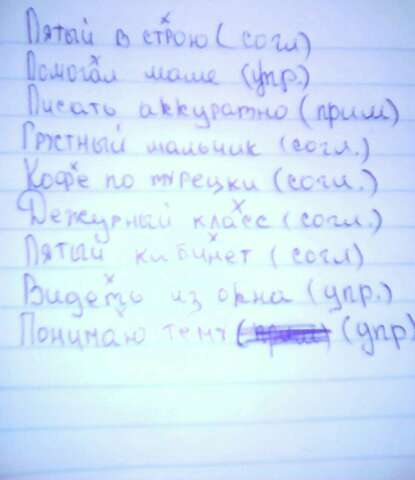 Пятый в строю (согл)
Помогал маме (упр.)
Писать аккуратно (прим)
Грустный мальчик (согл.)
Кофе по турецки (согл.)
Дежурный класс (согл.)
Пятый кибинет (согл)
Видеть из окна (упр.)
Понимаю тему (упр)